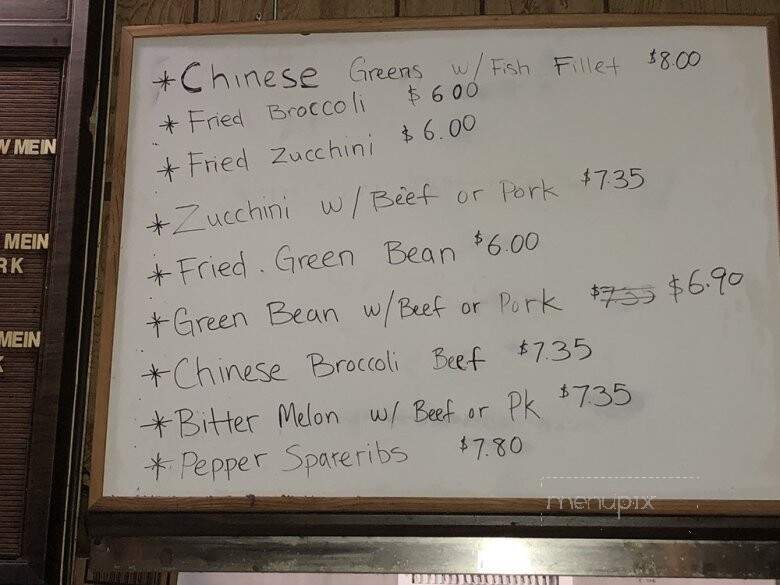 * Chinese Greens w/ Fish Fillet $8.00
* Fried Broccoli $6.00
* Fried Zucchini $6.00
* Zucchini w/ Beef or Pork $7.35
* Fried. Green Bean $6.00
* Green Bean w/Beef or Pork $7.35 $6.90
* Chinese Broccoli Beef $7.35
* Bitter Melon w/ Beef or Pk $7.35
* Pepper Spareribs $7.80
MEIN
MEIN
MEIN
menupix